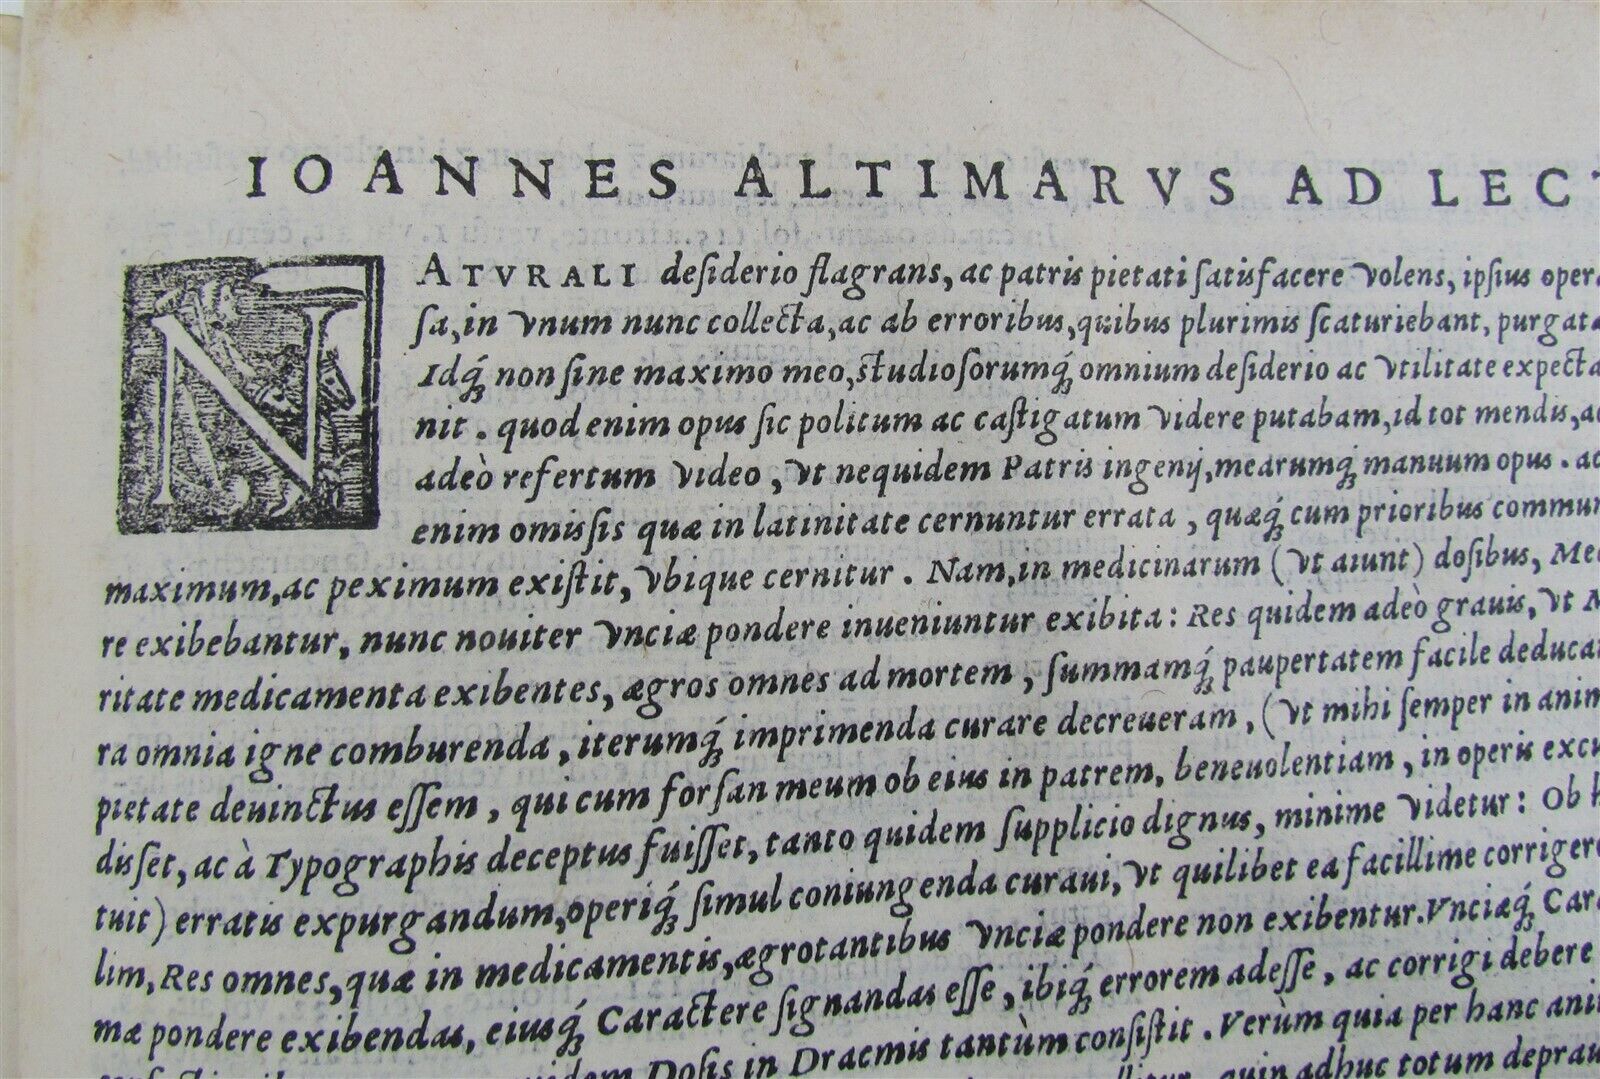 IOANNES ALTIMARVS AD LECT
NATVRALI deſiderio flagrans, ac patris pietati ſatisfacere volens, ipſius oper
ſa, in vnum nunc collecta, ac ab erroribus, quibus plurimis ſcaturiebant, purgata
Idq́; non ſine maximo meo, ſtudioſorumq́; omnium deſiderio ac vtilitate expecta
nit. quod enim opus ſic politum ac caſtigatum videre putabam, id tot mendis, a
adeò refertum video, vt nequidem Patris ingenij, mearumq́; manuum opus. ac
enim omiſſis quæ in latinitate cernuntur errata, quæq́; cum prioribus commun
maximum, ac peximum exiſtit, vbique cernitur. Nam, in medicinarum (vt aiunt) doſibus, Me
re exibebantur, nunc nouiter vnciæ pondere inueniuntur exibita: Res quidem adeò grauis, vt M
ritate medicamenta exibentes, ægros omnes ad mortem, ſummamq́; paupertatem facile deduca
ra omnia igne comburenda, iterumq́; imprimenda curare decreueram, (vt mihi ſemper in anim
pietate deuinctus eſſem, qui cum forſan meum ob eius in patrem, beneuolentiam, in operis excu
diſſet, ac à Typographis deceptus fuiſſet, tanto quidem ſupplicio dignus, minime videtur: Ob h
tuit) erratis expurgandum, operiq́; ſimul coniungenda curaui, vt quilibet ea facillime corriger
lim, Res omnes, quæ in medicamentis, ægrotantibus vnciæ pondere non exibentur. Vnciæq́; Car
mæ pondere exibendas, eiusq́; Caractere ſignandas eſſe, ibiq́; errorem adeſſe, ac corrigi debere
Doſis in Dracmis tantùm conſiſtit. Verùm quia per hanc ani
quin adhuc totum deprau